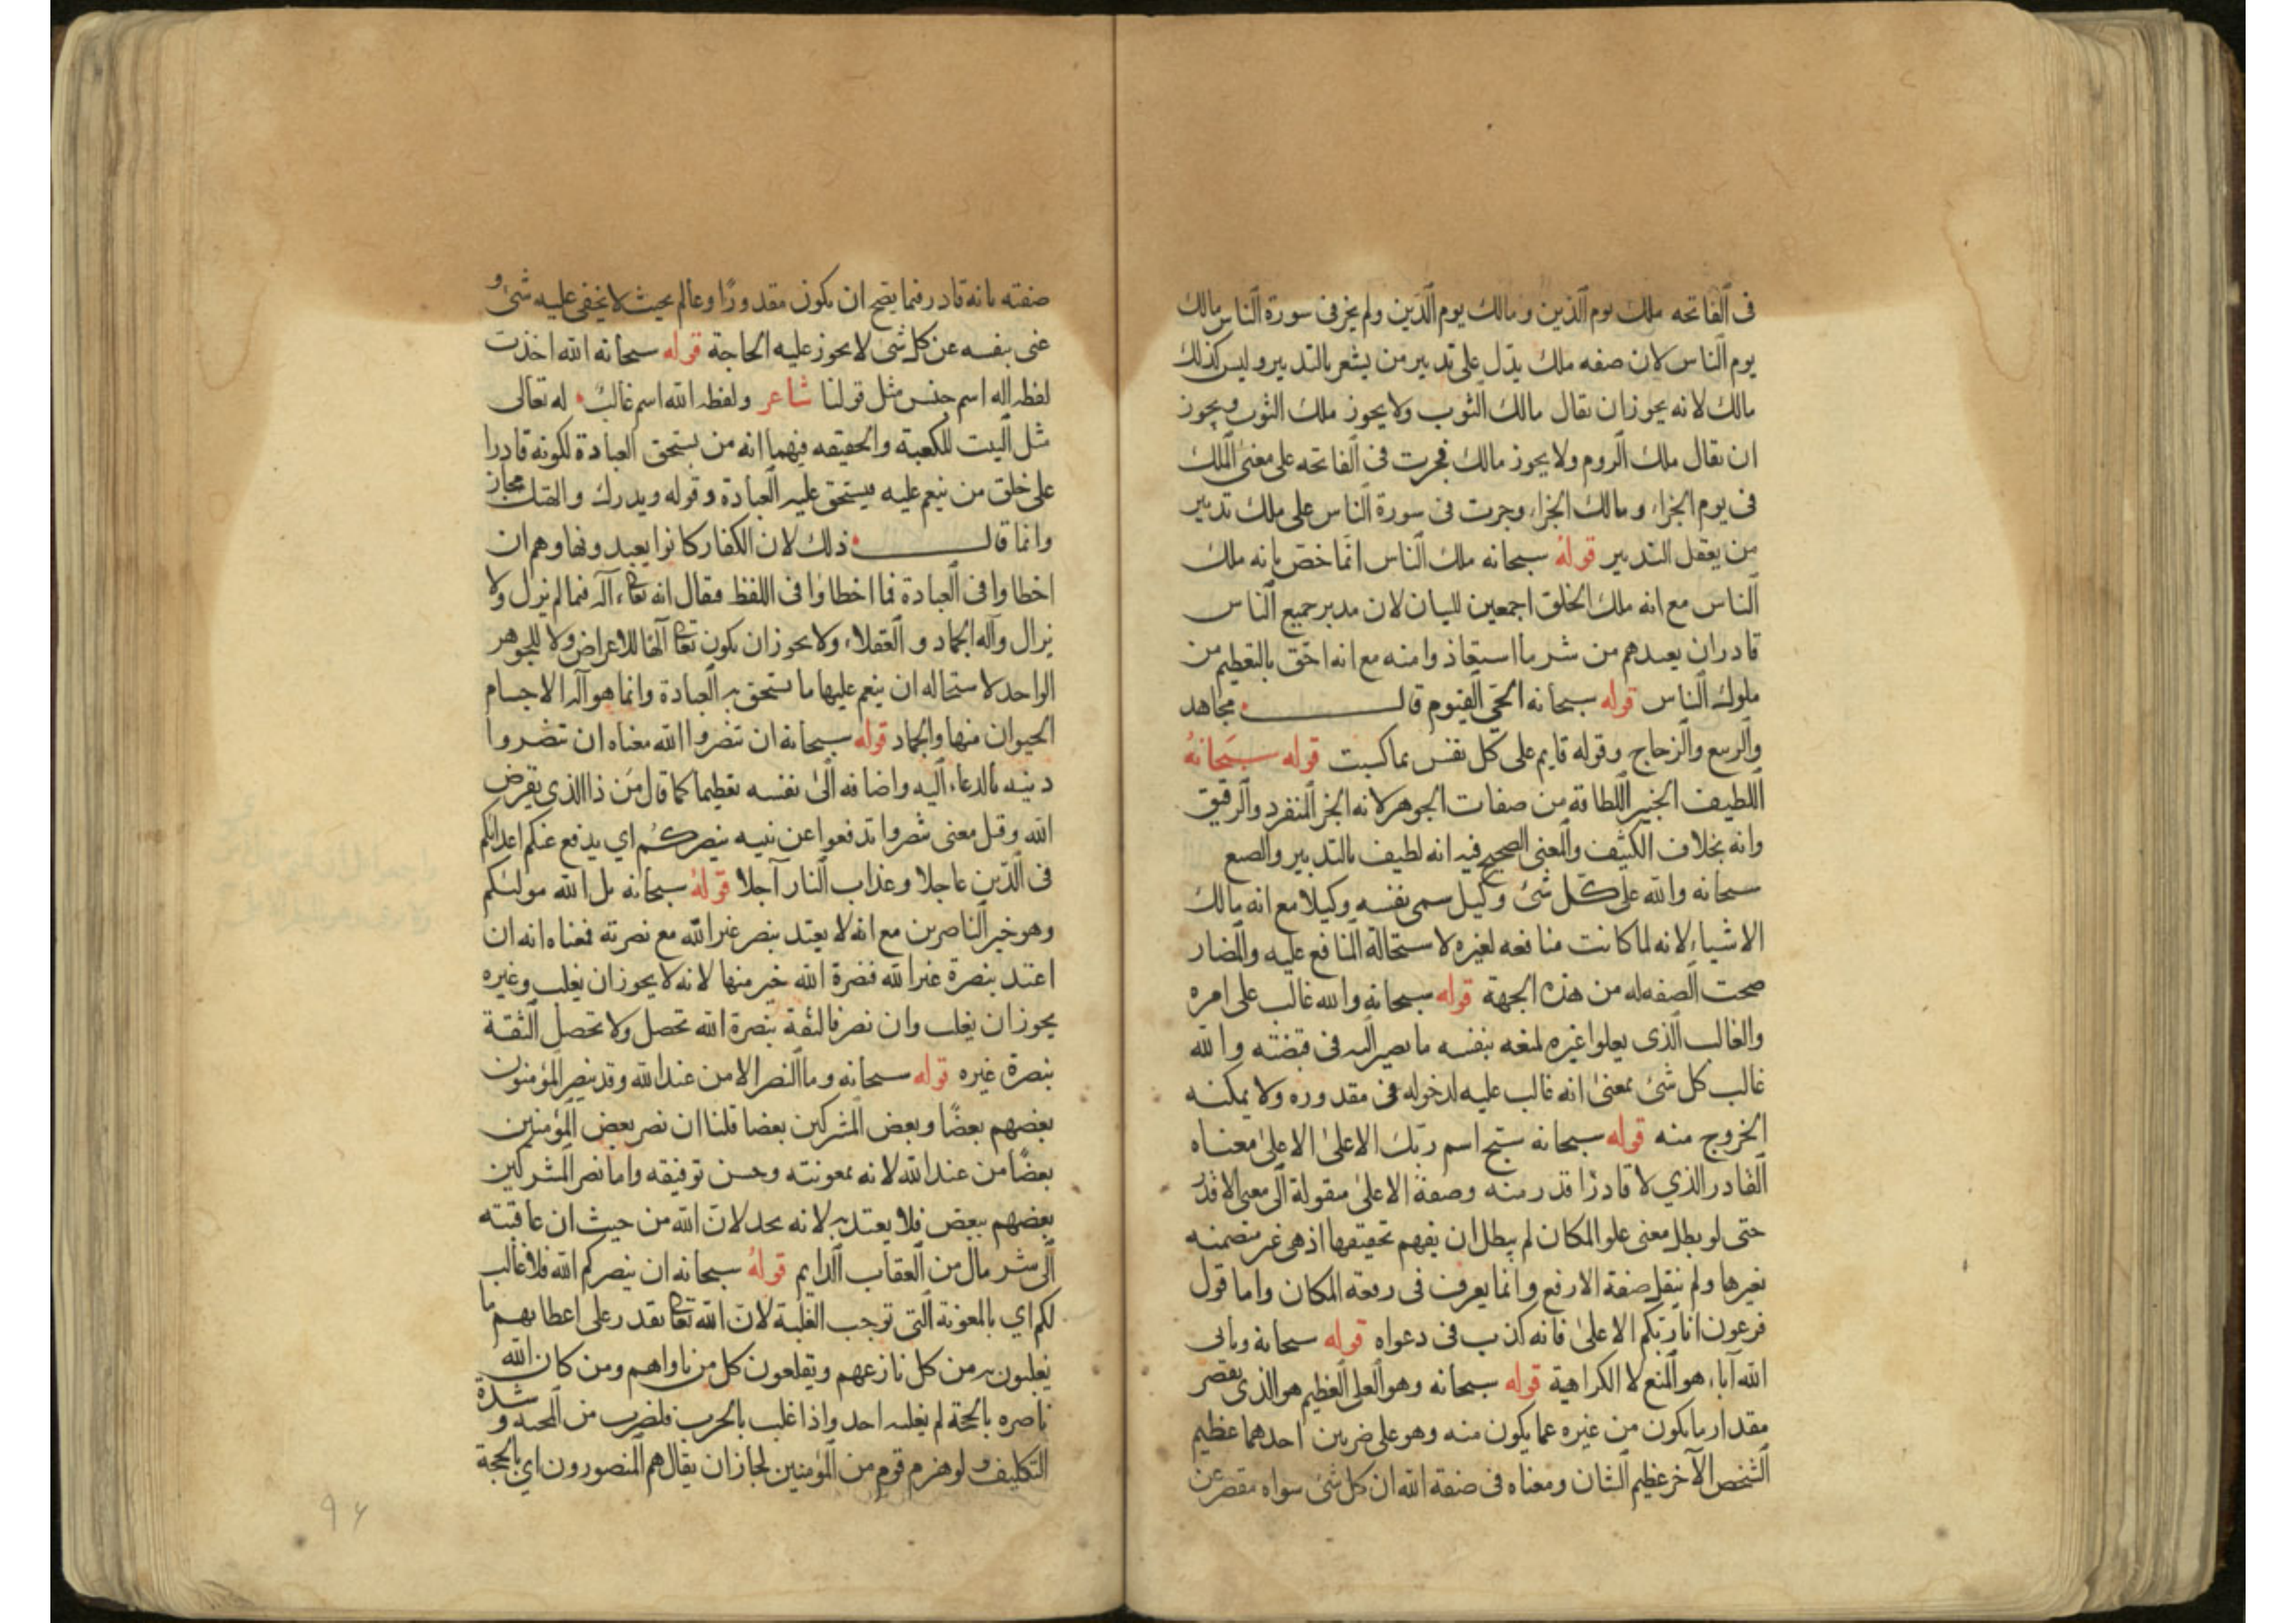 فى الفاتحه ملك يوم الدين و مالك يوم الدين ولم يجز فى سورة الناس مالك
يوم الناس لان صفه ملك يدل على تدبير من يشعر بالتدبير وليس كذلك
مالك لانه يجوز ان يقال مالك الثوب ولا يجوز ملك الثوب ويجوز
ان يقال ملك الروم ولا يجوز مالك فجرت فى الفاتحه على معنى الملك
فى يوم الجزاء و مالك الجزاء وجرت فى سورة الناس على ملك تدبير
من يعقل التدبير قوله سبحانه ملك الناس انما خص بانه ملك
الناس مع انه ملك الخلق اجمعين للبيان لان مدبر جميع الناس
قادر ان يعيدهم من شر ما استعاذوا منه مع انه احق بالتعظيم من
ملوك الناس قوله سبحانه الحى القيوم قال مجاهد
والربيع والزجاج وقوله قايم على كل نفس بما كسبت قوله سبحانه
اللطيف الخبير اللطافة من صفات الجوهر لانه الجز المنفرد والرقيق
وانه بخلاف الكثيف والمعنى الصحيح فيه انه لطيف بالتدبير والصنع
سبحانه والله على كل شئ وكيل سمى نفسه وكيلا مع انه مالك
الاشياء لانه لما كانت منافعه لغيره لاستحالة المنافع عليه والمضار
صحت الصفه له من هذه الجهة قوله سبحانه والله غالب على امره
والغالب الذى يعلوا غيره لمنعه بنفسه ما يصير اليه فى قبضته والله
غالب كل شئ بمعنى انه غالب عليه لدخوله فى مقدوره ولا يمكنه
الخروج منه قوله سبحانه سبح اسم ربك الاعلى الاعلى معناه
القادر الذي لا قادر اقدر منه وصفة الاعلى منقولة الى معنى الاقدر
حتى لو بطل معنى علو المكان لم يبطل ان يفهم تحقيقها اذ هى غير متضمنه
بغيرها ولم ينقل صفة الارفع وانما يعرف فى رفعة المكان واما قول
فرعون انا ربكم الاعلى فانه كذب فى دعواه قوله سبحانه ويابى
الله آباء هو المنع لا الكراهية قوله سبحانه وهو العلى العظيم هو الذى يقصر
مقدار ما يكون من غيره عما يكون منه وهو على ضربين احدهما عظيم
الشخص الآخر عظيم الشان ومعناه فى صفة الله ان كل شئ سواه مقصر عن
صفته بانه قادر فيما يصح ان يكون مقدورًا وعالم بحيث لا يخفى عليه شئ و
غنى بنفسه عن كل شئ لا يجوز عليه الحاجة قوله سبحانه الله اخذت
لفظه اله اسم جنس مثل قولنا شاعر ولفظه الله اسم غالب له تعالى
مثل البيت للكعبة والحقيقه فيهما انه من يستحق العبادة لكونه قادرا
على خلق من ينعم عليه فيستحق عليه العبادة وقوله ويدرك والهتك مجاز
وانما قال ذلك لان الكفار كانوا يعبدونها وهم ان
اخطاوا فى العبادة فما اخطاوا فى اللفظ فيقال انه تعالى اله فيما لم يزل ولا
يزال واله الجماد و العقلاء ولا يجوز ان يكون تعالى آلها للاعراض ولا للجوهر
الواحد لاستحاله ان ينعم عليها ما يستحق به العبادة وانما هو آله الاجسام
الحيوان منها والجماد قوله سبحانه ان تنصروا الله معناه ان تنصروا
دينه بالدعاء اليه واضافه الى نفسه تعظيما كما قال من ذا الذي يقرض
الله وقيل معنى تنصروا تدفعوا عن نبيه ينصركم اي يدفع عنكم اعدائكم
فى الدين عاجلا وعذاب النار آجلا قوله سبحانه بل الله موليكم
وهو خير الناصرين مع انه لا يعتد بنصر غير الله مع نصرته فمعناه انه ان
اعتد بنصرة غير الله فنصرة الله خير منها لانه لا يجوز ان يغلب وغيره
يجوز ان يغلب وان نصر فالثقة بنصرة الله تحصل ولا تحصل الثقة
بنصرة غيره قوله سبحانه وما النصر الا من عند الله وقد ينصر المؤمنون
بعضهم بعضًا وبعض المشركين بعضا قلنا ان نصر بعض المؤمنين
بعضًا من عند الله لانه بمعونته وحسن توفيقه واما نصر المشركين
بعضهم ببعض فلا يعتد به لانه بخدلان الله من حيث ان عاقبته
الى شر مال من العقاب الدايم قوله سبحانه ان ينصركم الله فلا غالب
لكم اي بالمعونة التى توجب الغلبة لان الله تعالى يقدر على اعطايهم ما
يغلبون به من كل نازعهم ويقلعون كل من ناواهم ومن كان الله
ناصره بالحجة لم يغلبه احد واذا غلب بالحرب فلضرب من المحنه و شدة
التكليف ولو هزم قوم من المؤمنين لجاز ان يقال هم المنصورون اي بالحجة